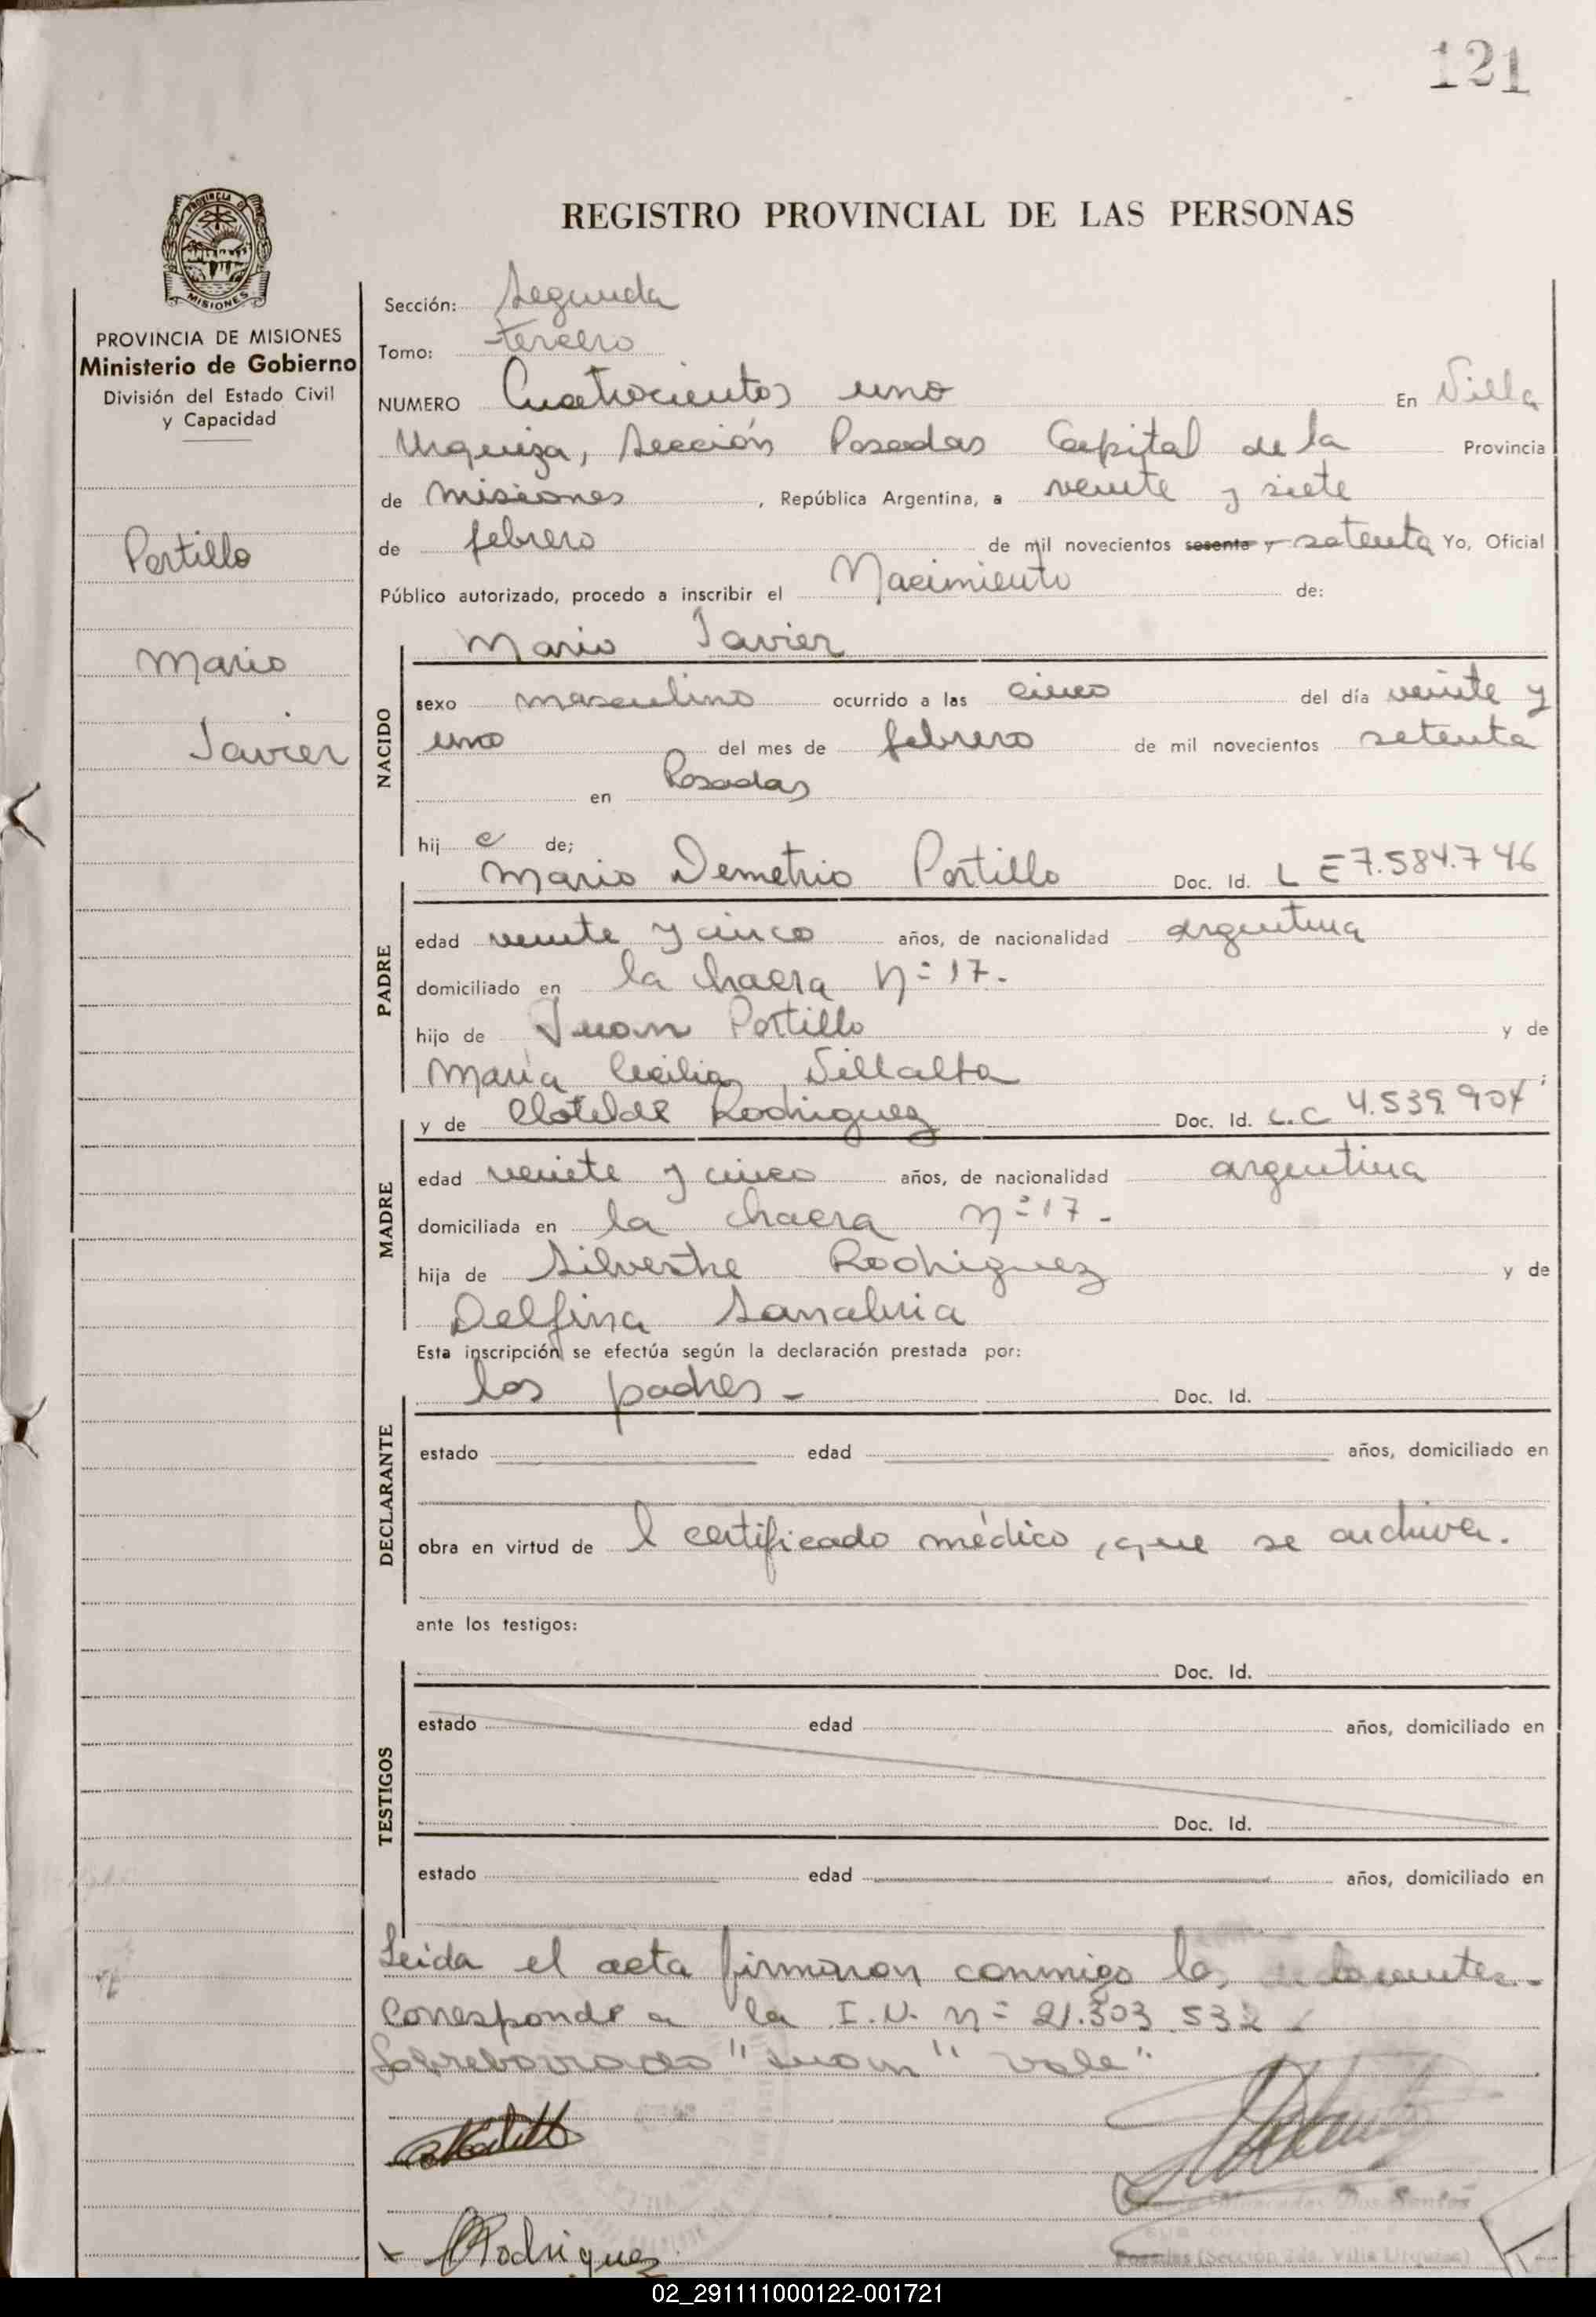 121
REGISTRO PROVINCIAL DE LAS PERSONAS
PROVINCIA DE MISIONES
Ministerio de Gobierno
División del Estado Civil
y Capacidad
Portillo
Mario
Javier
Sección: Segunda
Tomo: tercero
NUMERO Cuatrocientos uno En Villa
Urquiza, Sección Posadas Capital de la Provincia
de Misiones, República Argentina, a veinte y siete
de febrero de mil novecientos sesenta y setenta Yo, Oficial
Público autorizado, procedo a inscribir el Nacimiento de:
NACIDO
Mario Javier
sexo masculino ocurrido a las cinco del día veinte y
uno del mes de febrero de mil novecientos setenta
en Posadas
hij o de;
PADRE
Mario Demetrio Portillo Doc. Id. L E 7.584.746
edad veinte y cinco años, de nacionalidad argentina
domiciliado en la chacra Nº 17.
hijo de Juan Portillo y de
María Cecilia Villalta ;
MADRE
y de Clotilde Rodriguez Doc. Id. L.C 4.539.904
edad veinte y cinco años, de nacionalidad argentina
domiciliada en la chacra nº 17 -
hija de Silvestre Rodriguez y de
Delfina Sanabria
Esta inscripción se efectúa según la declaración prestada por:
DECLARANTE
los padres - Doc. Id.
estado edad años, domiciliado en
obra en virtud de l certificado médico, que se archiva.
ante los testigos:
TESTIGOS
Doc. Id.
estado edad años, domiciliado en
Doc. Id.
estado edad años, domiciliado en
Leida el acta firmaron conmigo los
Corresponde a la I.N. nº 21.303.532
Sobreborrado "Juan" vale"
Portillo
Rodriguez
Mercedes Dos Santos
Posadas (Sección 2da. Villa Urquiza)
02_291111000122-001721